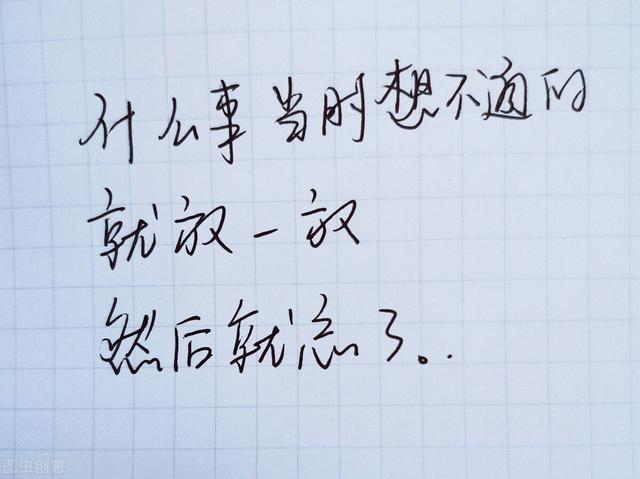 什么事当时想不通的
就放一放
然后就忘了。..
图虫创意